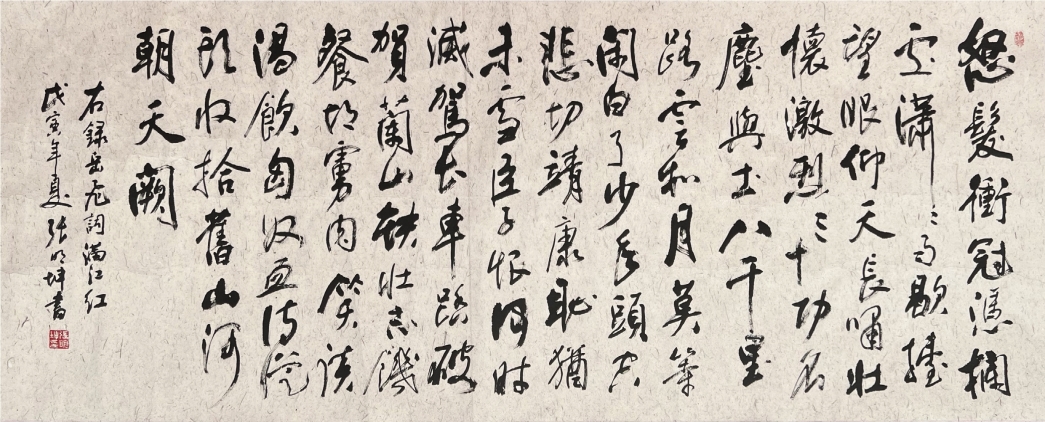 怒髮衝冠憑欄
處瀟〻雨歇擡
望眼仰天長嘯壯
懷激烈三十功名
塵與土八千里
路雲和月莫等
閑白了少年頭空
悲切靖康恥猶
未雪臣子恨何時
滅駕長車踏破
賀蘭山缺壯志饑
餐胡虜肉笑談
渴飲匈奴血待從
頭收拾舊山河
朝天闕
右錄岳飛詞滿江紅
戊寅年夏張明坤書